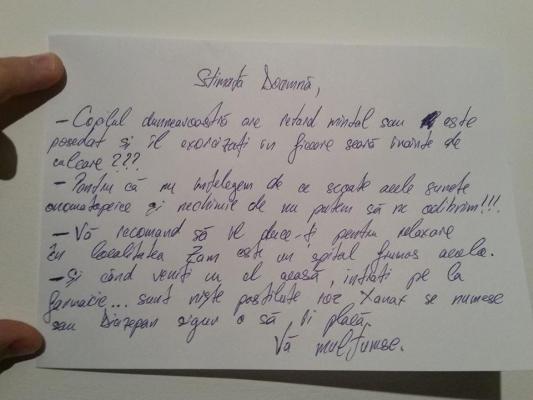 Stimată Doamnă,
– Copilul dumneavoastră are retard mintal sau este
posedat și îl exorcizați în fiecare seară înainte de
culcare ???
– Pentru că nu înțelegem de ce scoate acele sunete
onomatopeice și nechinuie de nu putem să ne odihnim!!!
– Vă recomand să îl duce-ți pentru relaxare
în localitatea Zam este un spital frumos acolo.
– Și când veniți cu el acasă, intrați pe la
farmacie... sunt niște pastiluțe roz Xanax se numesc
sau Diazepan sigur o să îi placă.
Vă mulțumesc.